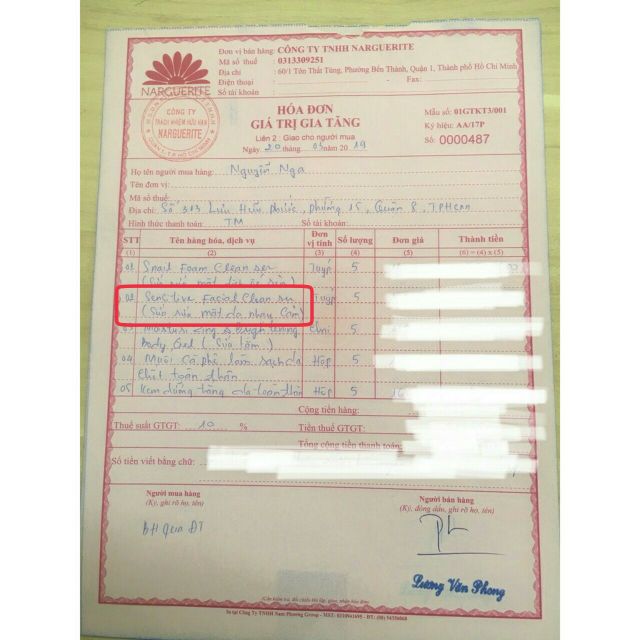 Đơn vị bán hàng: CÔNG TY TNHH NARGUERITE
Mã số thuế : 0313309251
Địa chỉ : 60/1 Tôn Thất Tùng, Phường Bến Thành, Quận 1, Thành phố Hồ Chí Minh
Điện thoại : - Fax:
Số tài khoản :
NARGUERITE
CÔNG TY
TRÁCH NHIỆM HỮU HẠN
NARGUERITE
HÓA ĐƠN
GIÁ TRỊ GIA TĂNG
Liên 2 : Giao cho người mua
Ngày 20 tháng 03 năm 2019
Mẫu số: 01GTKT3/001
Ký hiệu: AA/17P
Số: 0000487
Họ tên người mua hàng: Nguyễn Nga
Tên đơn vị:
Mã số thuế:
Địa chỉ: Số 313 Lưu Hữu Phước, phường 15, Quận 8, TPHCM
Hình thức thanh toán: TM Số tài khoản:
STT Tên hàng hóa, dịch vụ Đơn vị tính Số lượng Đơn giá Thành tiền
(1) (2) (3) (4) (5) (6) = (4) x (5)
01 Snail Foam Cleanser Tuýp 5
(Sữa rửa mặt
02 Sensitive Facial Cleanser Tuýp 5
(Sữa rửa mặt da nhạy cảm)
03 Chai 5
Body Gel (Sữa tắm)
04 Muối Cà phê làm sạch da Hộp 5
chết toàn thân
05 Kem dưỡng trắng da toàn thân Hộp 5
Cộng tiền hàng:
Thuế suất GTGT: 10 % Tiền thuế GTGT:
Tổng cộng tiền thanh toán:
Số tiền viết bằng chữ:
Người mua hàng
(Ký, ghi rõ họ, tên)
Người bán hàng
(Ký, đóng dấu, ghi rõ họ, tên)
BH qua ĐT
Lương Văn Phong
(Cần kiểm tra, đối chiếu khi lập, giao, nhận hóa đơn)
In tại Công ty TNHH Nam Phương Group - MST: